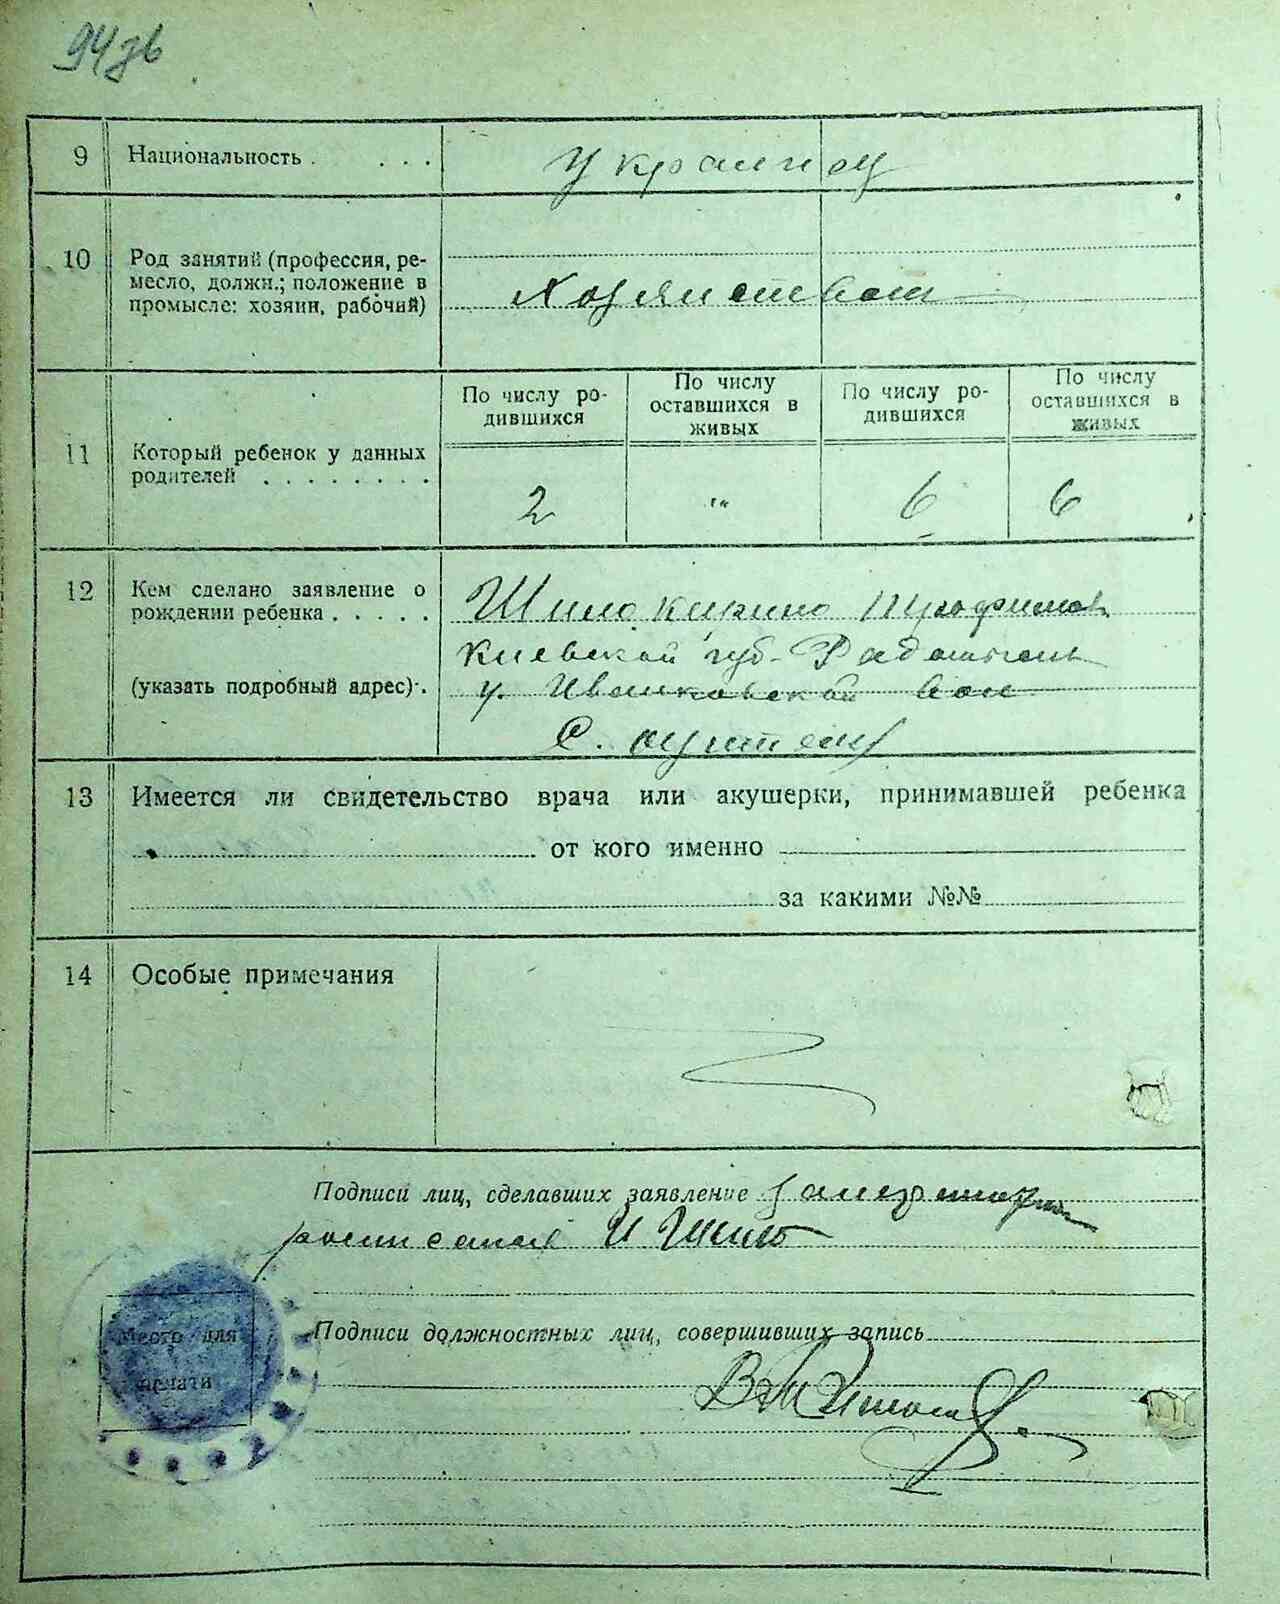 94зв
9 Национальность . . . . Украинец
10 Род занятий (профессия, ре-
месло, должн.; положение в
промысле: хозяин, рабочий)
По числу ро-
дившихся
По числу
оставшихся в
живых
По числу ро-
дившихся
По числу
оставшихся в
живых
11 Который ребенок у данных
родителей . . . . . . . .
2 " 6 6
12 Кем сделано заявление о
рождении ребенка . . . . .
(указать подробный адрес) .
Шило
Киевской губ-
у. Иванковской Вол
С.
13 Имеется ли свидетельство врача или акушерки, принимавшей ребенка
от кого именно
за какими №№
14 Особые примечания
Подписи лиц, сделавших заявление
И Шило
Подписи должностных лиц, совершивших запись
Место для
печати